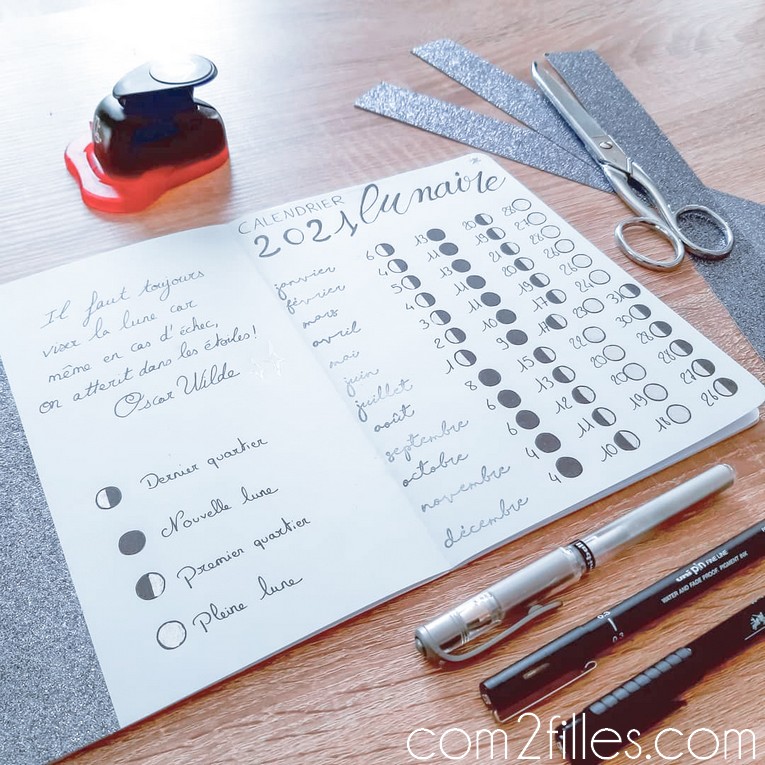 Il faut toujours
viser la lune car
même en cas d'échec,
on atterit dans les étoiles!
Oscar Wilde
Dernier quartier
Nouvelle lune
Premier quartier
Pleine lune
CALENDRIER
2021 lunaire
janvier 6 13 20 28
février 4 11 19 27
mars 5 13 21 28
avril 4 11 20
mai 3 11 19 26
juin 2 10 17 24
juillet 1 9 17 23 31
août 8 15 22 30
septembre 6 13 20
octobre 6 12 20
novembre 4 11 19 27
décembre 4 10 18 26
uni pin FINE LINE
WATER AND FADE PROOF PIGMENT INK
0.3
com2filles.com